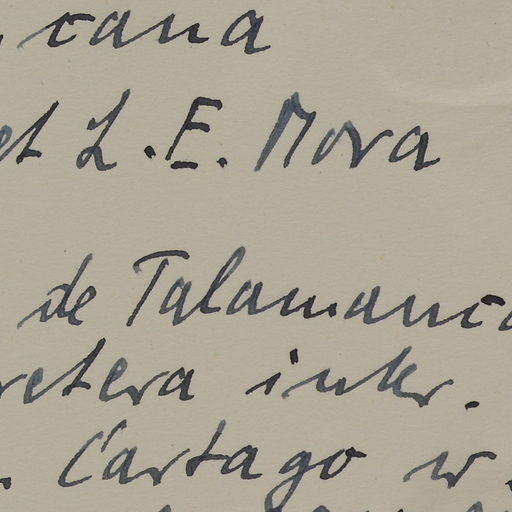 cana
et L.E. Mora
de Talamanca
retera inter.
. Cartago w.